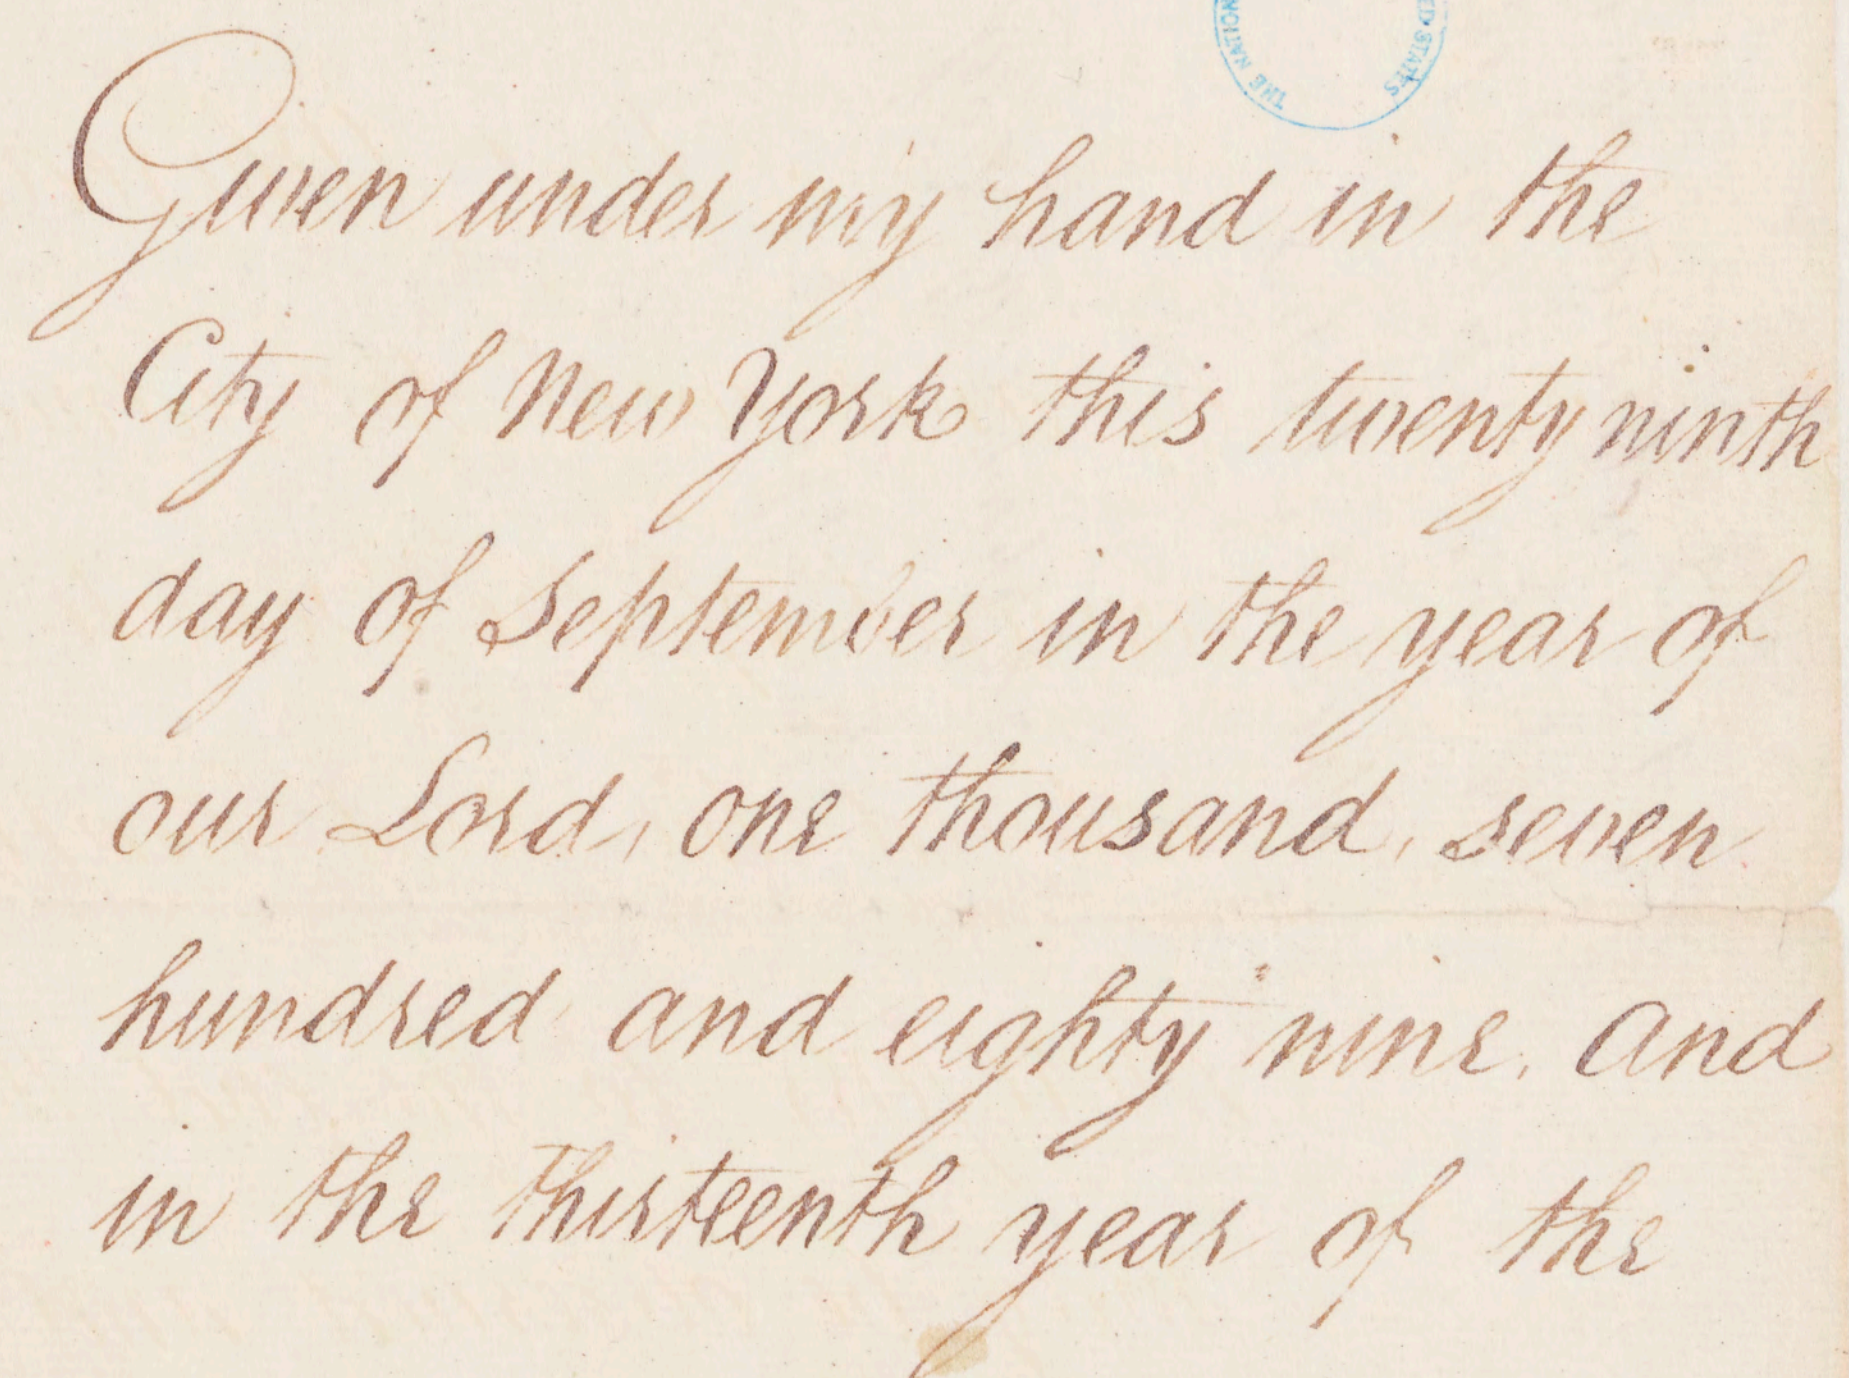 THE NATION
ED STATES
Given under my hand in the
City of New York this twenty ninth
day of September in the year of
our Lord, one thousand, seven
hundred and eighty nine. And
in the thirteenth year of the